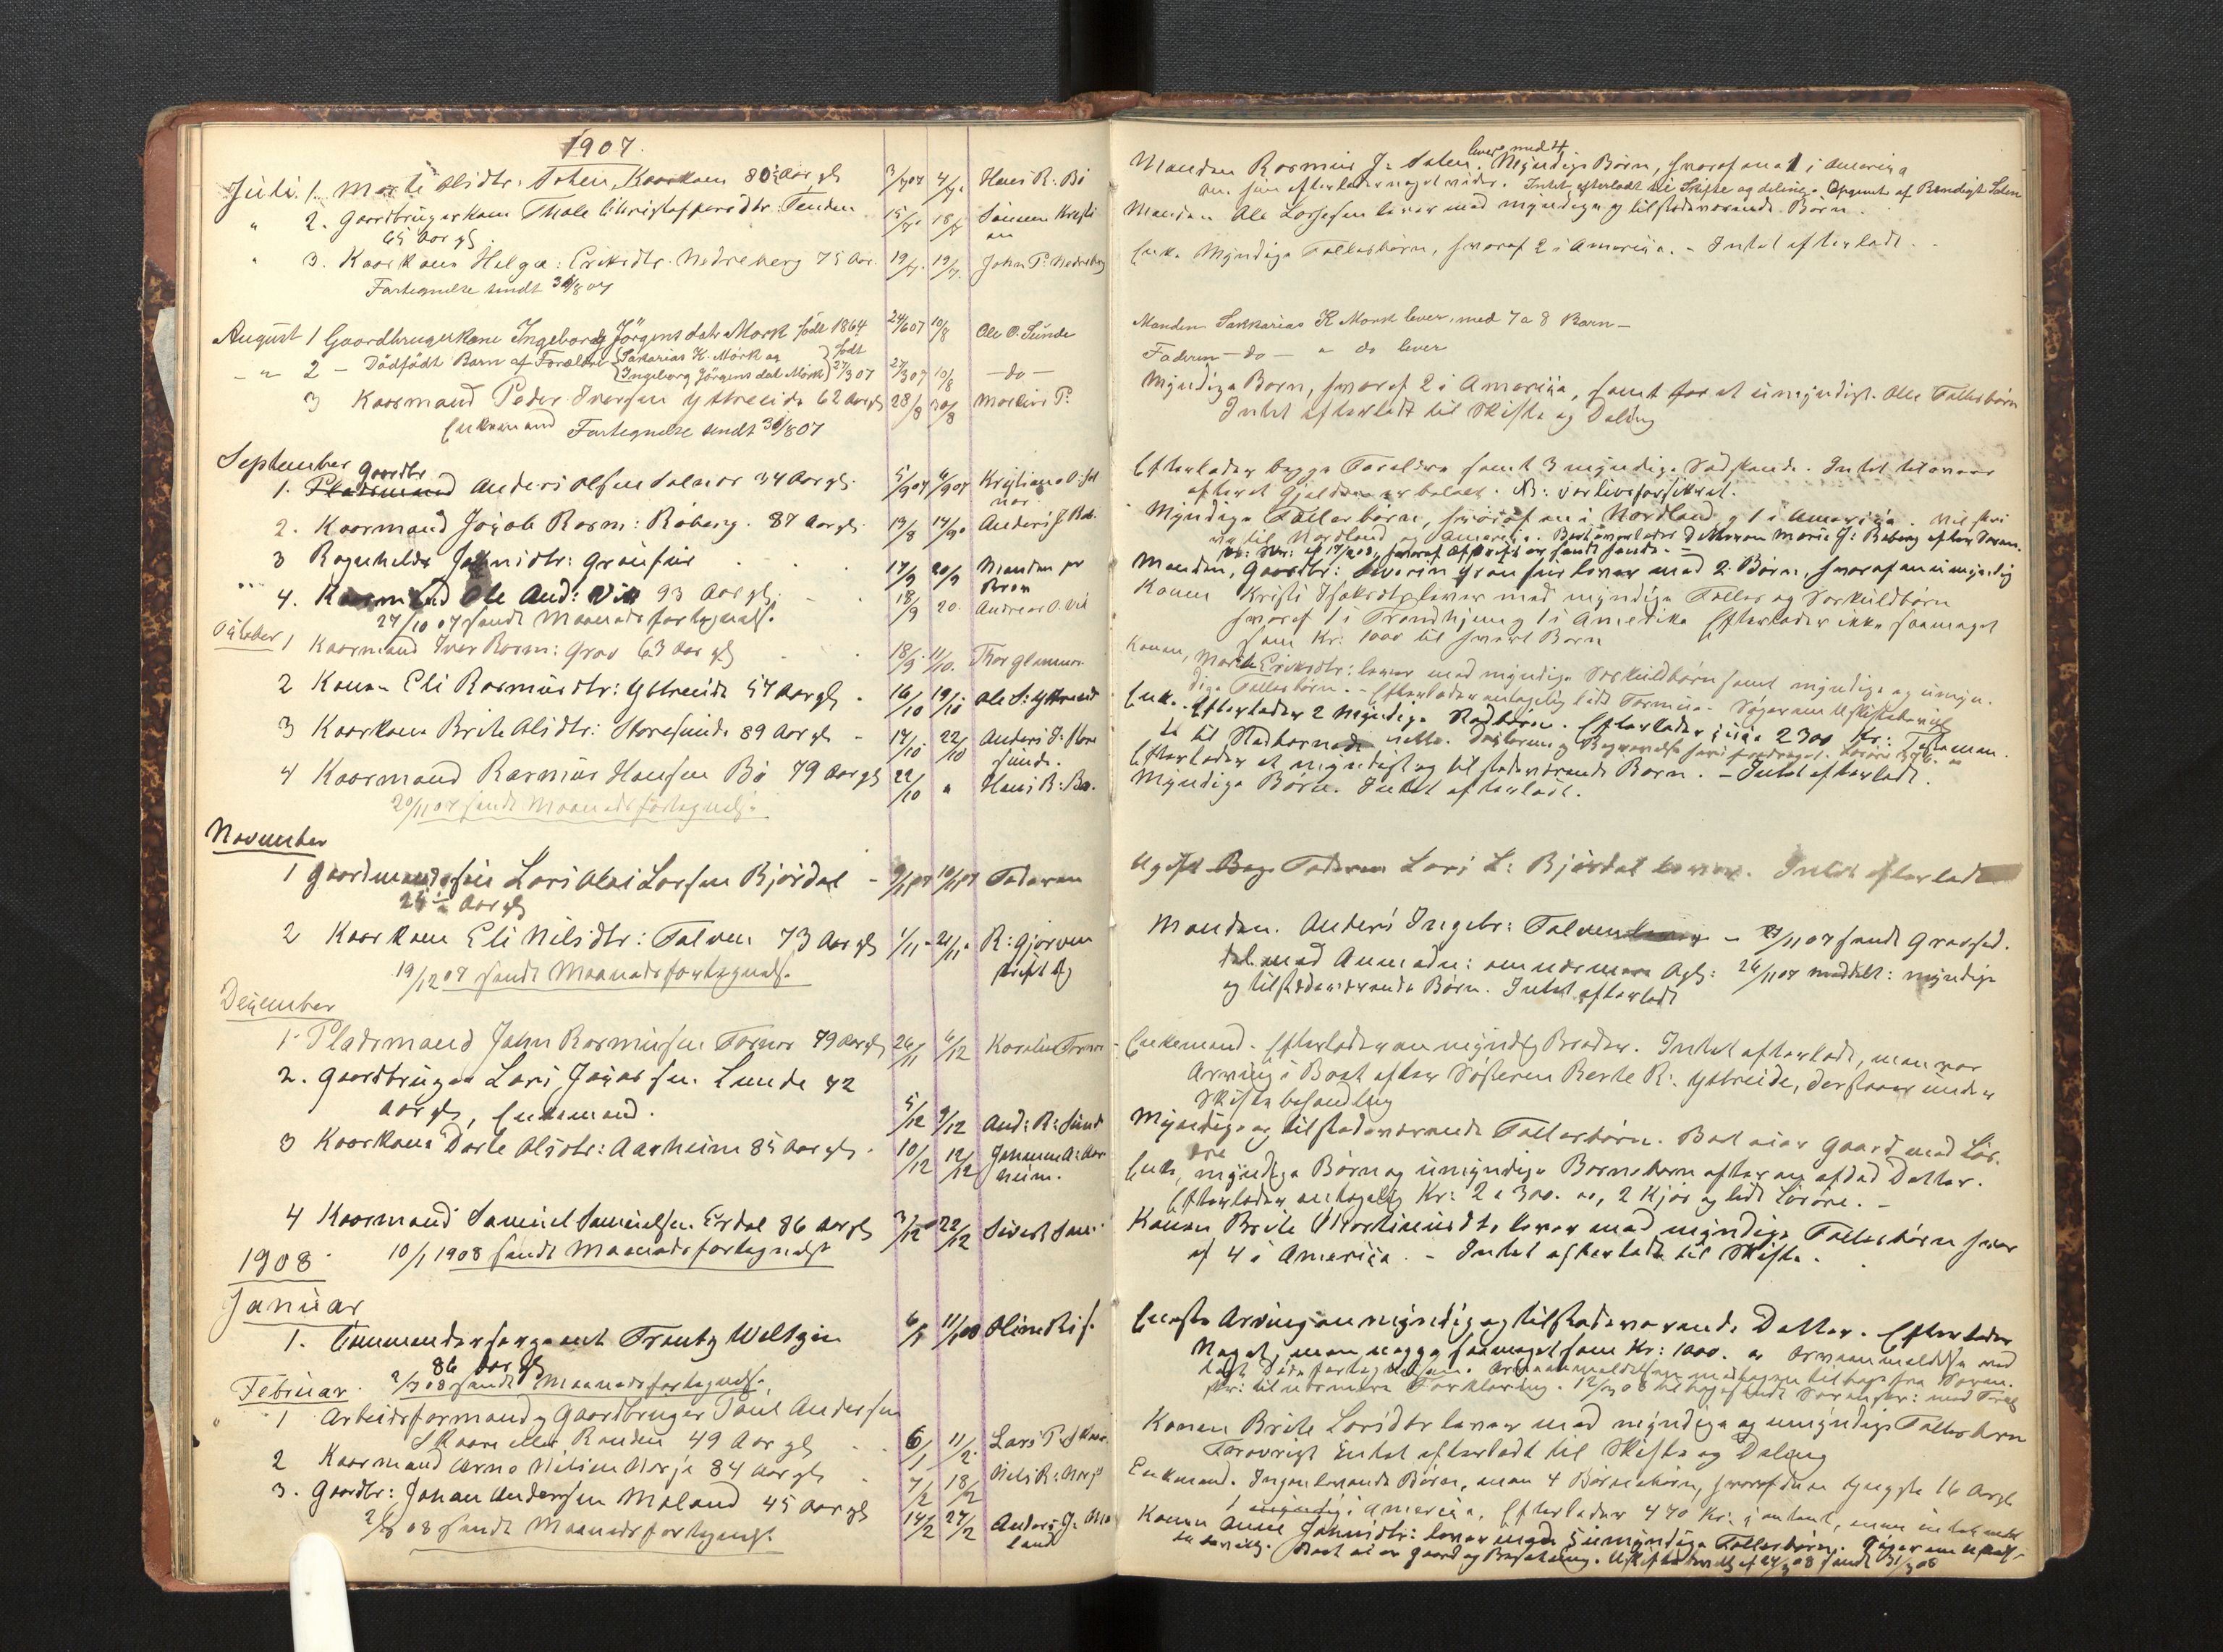 1907.
Juli 1. Marte Olsdtr: Solen, Kaarkone 80½ Aar gl 3/7 07 4/7 Hans R. Bö
" 2. Gaardbrugerkone Thale Christoffersdtr: Tenden 15/7 18/7 Simon Kristi
65 Aar gl. an
" 3. Kaarkone Helga: Eriksdtr. Nedreberg 75 Aar. 19/7. 19/7. John P. Nedreberg
Fortegnelse sendt 30/8 07
August 1 Gaardbrugerkone Ingeborg Jörgensdatr Mork födt 1864 24/6 07 10/8 Ole O. Sunde
– " 2 – Dödfödt Barn af Forældre Sakarias K. Mörk og födt
Ingeborg Jörgensdat Mörk 27/3 07 27/3 07 10/8 – do –
3 Kaarmand Peder Iversen Ytreeide 62 Aar gl 28/8 30/8 Markus P.
Enkemand Fortegnelse sendt 30/8 07
September Gaardbr
1. Pladsmand Anders Olsen Solnor 34 Aar gl. 5/9 07 6/9 07 Kristiane O: Sol
nor.
2. Kaarmand Jacob Rasm: Raberg. 87 Aar gl. 13/8 14/9 Anders J Rab.
3 Ragnhilda Johnsdtr: Gronfur 17/9 20/9 Manden pr
Brev
4. Kaarmand Ole And: Vik 93 Aar gl. 18/9 20. Andreas O. Vik
27/10 07 sendt Maanedsfortegnels.
October 1 Kaarmand Iver Rasm: Grov 63 Aar gl 18/9. 11/10. Thor Glomnes
2 Konen Eli Rasmusdtr: Ytreeide 57 Aar gl. 16/10 19/10 Ole S: Ytreeide
3 Kaarkone Brite Olsdtr: Storesunde 89 Aar gl – 17/10 22/10 Anders J: Store
sunde.
4 Kaarmand Rasmus Hansen Bö 79 Aar gl 22/10 " Hans R: Bö.
20/11 07 sendt Maanedsfortegnels.
November
1 Gaardmandssön Lars Olai Larsen Björdal – 9/11 07 10/11 07 Faderen
24 ½ Aar gl
2 Kaarkone Eli Nilsdtr: Folven 73 Aar gl 1/11 – 21/11. R: Gjörven
skriftlig
19/12 07 sendt Maanedsfortegnels.
December
1 Pladsmand John Rasmusen Tornor 79 Aar gl 26/11 6/12 Karoline Tornor
2. Gaardbruger Lars Jacobsen Lunde 72
Aar gl, Enkemand. 5/12 9/12 And: R: Sund
3 Kaarkone Dorte Olsdtr: Aarheim 85 Aar gl. 10/12 12/12 Johannes A: Aar
heim.
4 Kaarmand Samuel Samuelsen Erdal 86 Aar gl 3/12 22/12 Sivert Sam:
1908. 10/1 1908 sendt Maanedsfortegnelse
Januar
1. Commandersergeant Frantz Weltzin 6/1 11/1 08 Oline Ris.
86 Aar gl
2/3 08 sendt Maanedsfortegnels.
Februar
" 1 Arbeidsformand & Gaardbruger Poul Andersen
Skaare eller Randen 49 Aar gl 6/1 11/2. Lars P. Skaar.
2 Kaarmand Arne Nilsen Norje 84 Aar gl. 7/2 18/2 Nils R: Norje
3. Gaardbr: Johan Andersen Moland 45 Aar gl 14/2 27/2 Anders J: Mo
land
2/3 08 sendt Maanedsfortegnels.
lever med 4
Manden Rasmus J: Solen, Myndige Börn, hvoraf en at 1 i America
Intet efterladt til Skifte og deling. Opgivet af Rendigt Solen
Manden Ole Larsesen lever med myndige og tilstedeværende Börn.
Enke. Myndige Fællesbörn, hvoraf 2 i America. – Intet efterladt.
Manden Sakkarias K Mork lever, med 7 a 8 Barn –
Faderen – do – " do lever
Myndige Born, hvoraf 2 i America, samt for et umyndigt. Alle Fællesbörn
Intet efterladt til Skifte og Deling
Efterlader begge Forældre samt 3 myndige Södskende. Intet tilovers
efterat Gjelden er betalt. N: var livsforsikret.
Myndige Fællesbörn, hvoraf en i Nordland & 1 i America. Vil skri
ve til Nordland og America.
Manden, Gaardbr: Severin Gronfur lever med 2 Börn, hvoraf en umyndig
Konen Kristi Isaksdtr lever med myndige Fælles og Særkuldbörn
hvoraf 1 i Trondhjem & 1 i Amerika Efterlader ikke saameget
som Kr: 1000 til hvert Barn
Konen, Marte Eriksdtr: lever med myndige Særkuldbörn samt myndige og umyn.
dige Fællesbörn. – Efterlader antagelig lidt Formue. Söger om Uskiftebevilg
Enke. Efterlader 2 Myndige Stedbörn. Efterlader circa 2300 Kr: Testamen.
te til Stedbornede netto.
Efterlader et myndigt og tilstedeværende Barn. – Intet efterladt.
Myndige Börn. Intet efterladt.
Ugift Beg. Faderen Lars L: Björdal lever. Intet efterladt
Manden. Anders Ingebr: Folven lever – 21/11 07 sendt Gravsed.
del med Anmodn: om nærmere Opl: 26/11 07 meddelt: myndige
og tilstedeværende Börn. Intet efterladt
Enkemand. Efterlader en myndig Broder. Intet efterladt, men var
Arving i Boet efter Söster­en Berte R: Ytreeide, der staar under
Skiftebehandling
Myndige og tilstedeværende Fællesbörn. Boet eier Gaard med Lös.
öre
Enke, myndige Börn og umyndige Bornebörn efter en afdöd Datter.
Efterlader antagelig Kr: 2 a 300. oo, 2 Kjör og lidt Lösöre. –
Konen Brite Mortinusdtr lever med myndige Fællesbörn hvor
af 4 i America. – Intet efterladt til Skifte.
Eneste Arving en myndig og tilstedeværende Datter. Efterlader
Noget, men neppe saameget som Kr: 1000. oo
Konen Brite Larsdtr lever med myndige og umyndige Fællesbörn
Forövrigt intet efterladt til Skifte og Deling
Enkemand. Ingen levende Börn, men 4 Börnebörn, hvoraf den yngste 16 Aar gl
1 myndig i America. Efterlader 470 Kr: contant, men intet
Konen Anne Johnsdtr: lever med 5 umyndige Fællesbörn. Söger om Uskif-
tebevilg. Boet eier Gaard og Besætning. Uskiftebevilg af 24/3 08 sendt 31/3 08